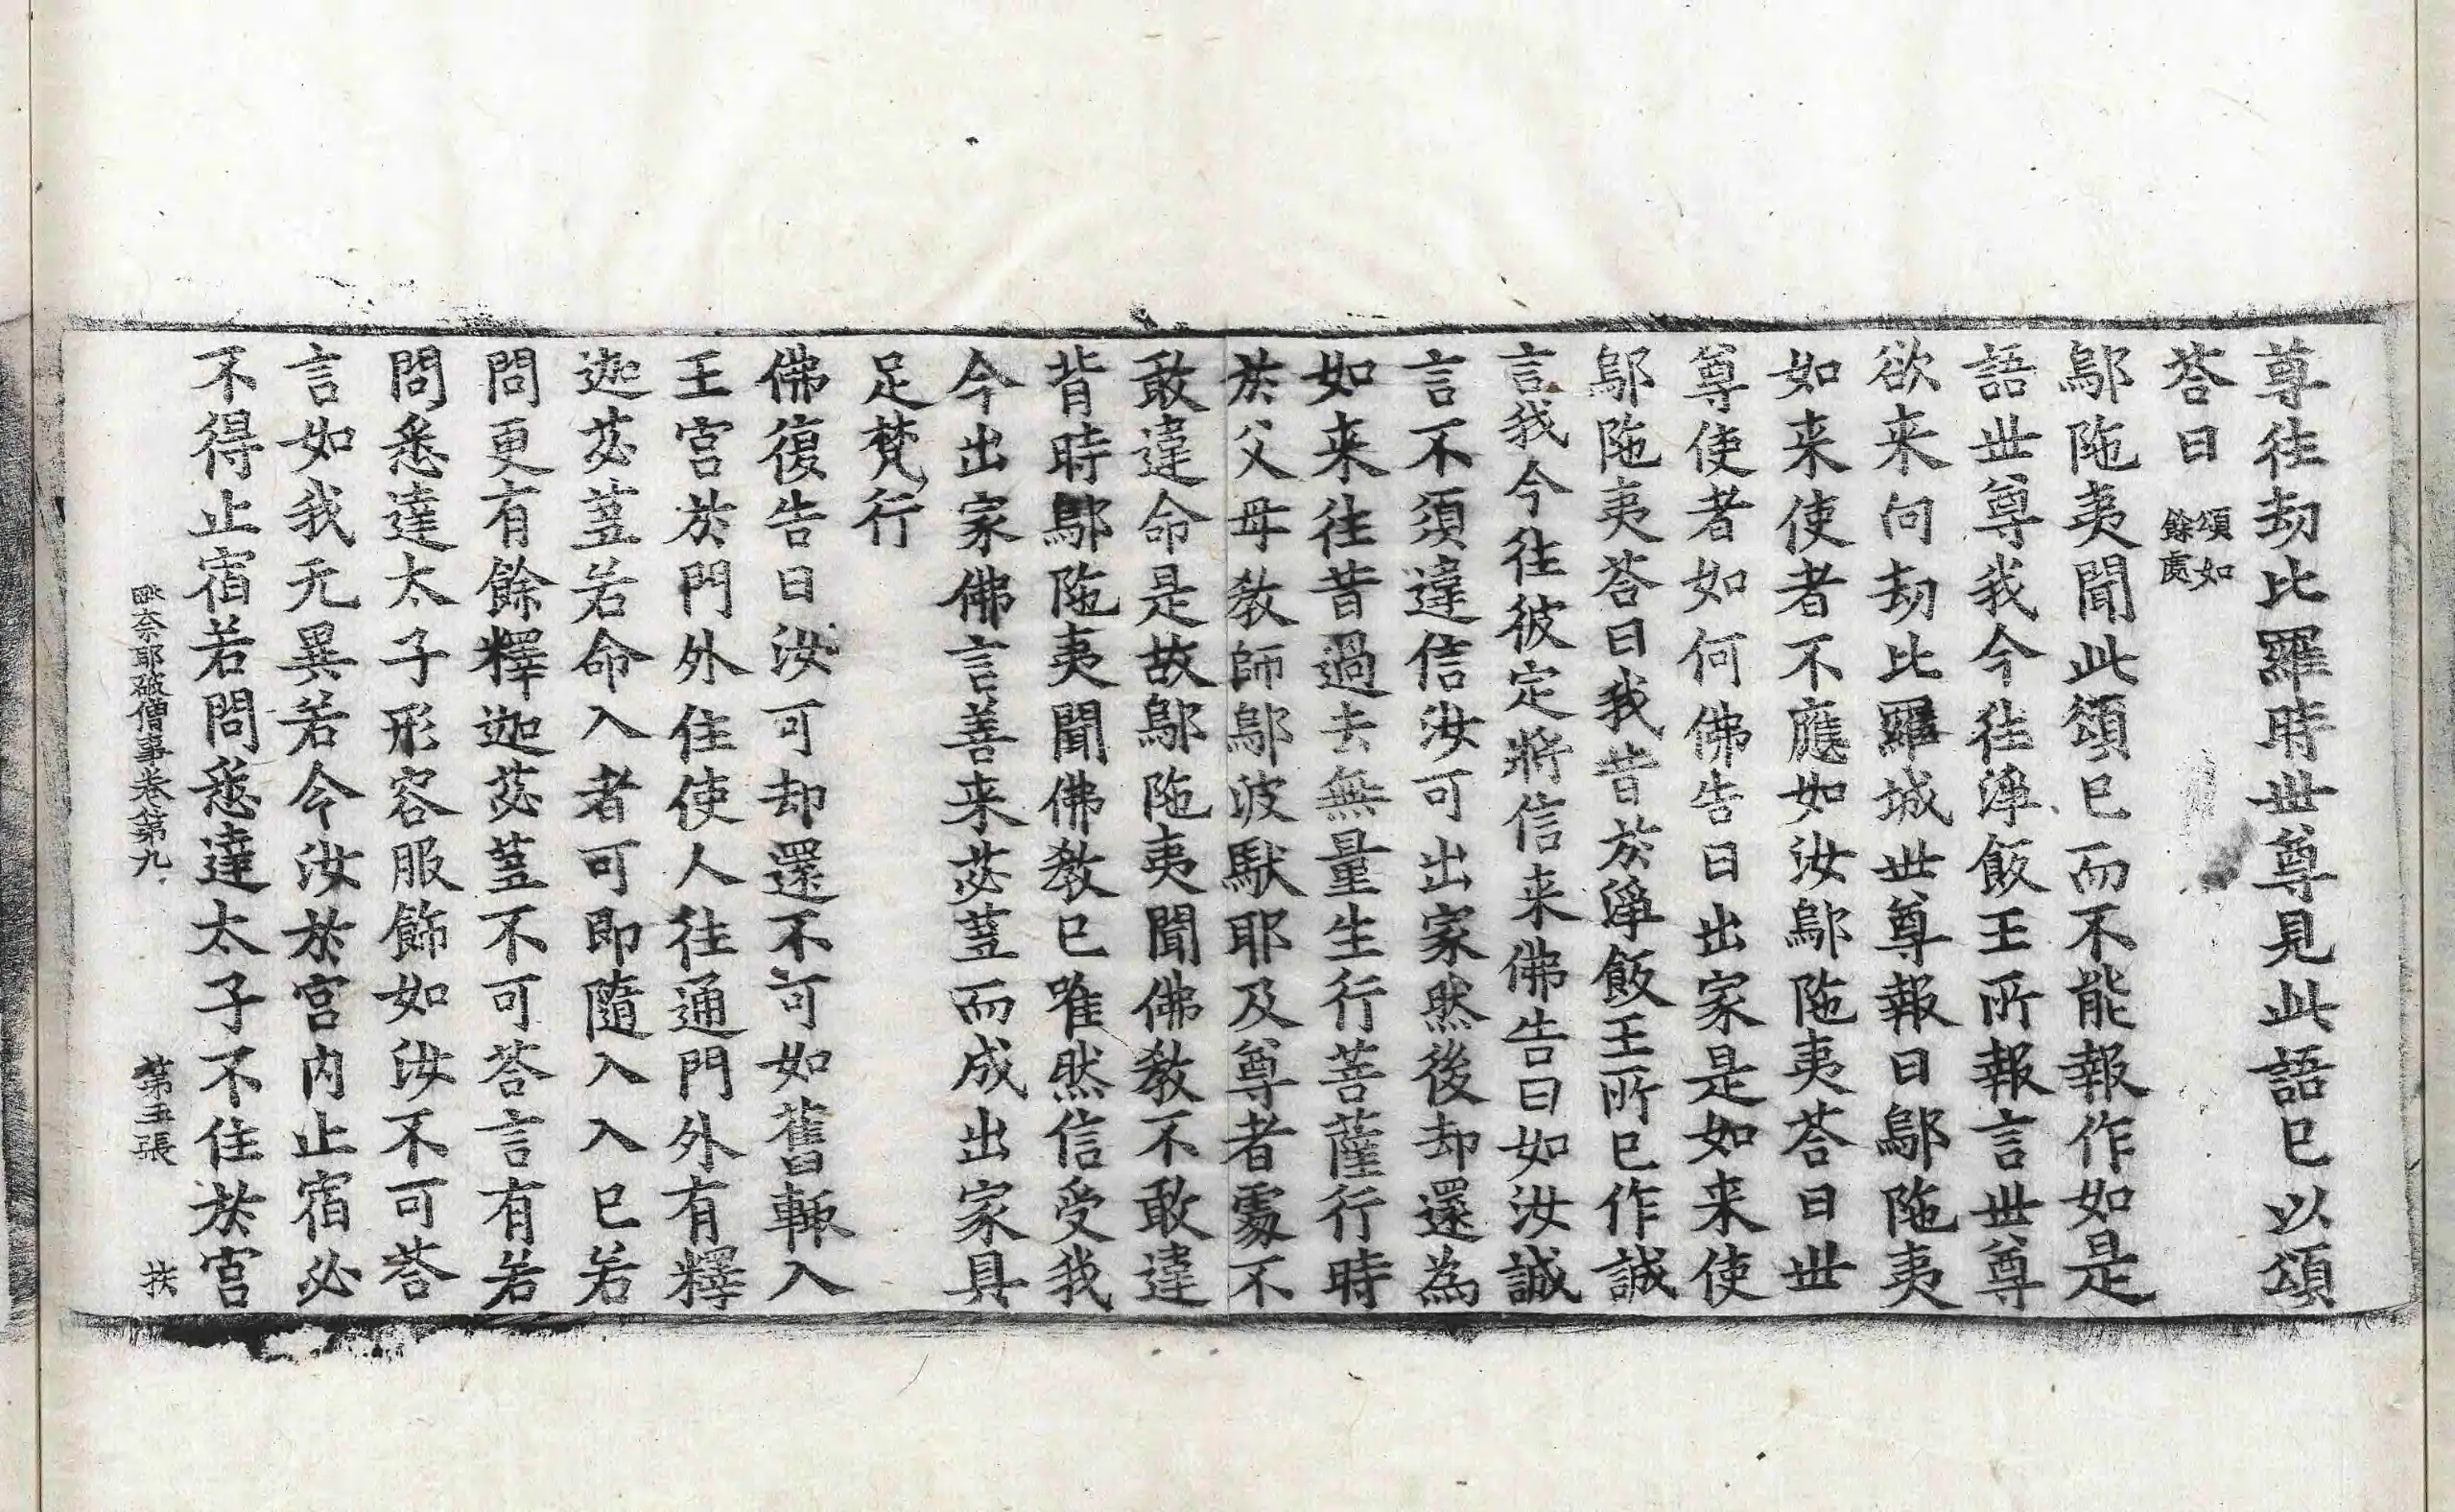 尊往劫比羅時世尊見此語已以頌
荅曰 頌如餘處
鄔陁夷聞此頌已而不能報作如是
語世尊我今往淨飯王所報言世尊
欲来向劫比羅城世尊報曰鄔陁夷
如来使者不應如汝鄔陁夷荅曰世
尊使者如何佛告曰出家是如来使
鄔陁夷荅曰我昔於淨飯王所已作誠
言我今往彼定將信来佛告曰如汝誠
言不須違信汝可出家然後却還為
如来往昔過去無量生行菩薩行時
於父母教師鄔波馱耶及尊者處不
敢違命是故鄔陁夷聞佛教不敢違
背時鄔陁夷聞佛教已唯然信受我
今出家佛言善来苾蒭而成出家具
足梵行
佛復告曰汝可却還不可如舊輙入
王宮於門外住使人往通門外有釋
迦苾蒭若命入者可即隨入入已若
問更有餘釋迦苾蒭不可荅言有若
問悉達太子形容服飾如汝不可荅
言如我无異若今汝於宮內止宿必
不得止宿若問悉達太子不住於宮
奈耶破僧事卷第九 第五張 扶